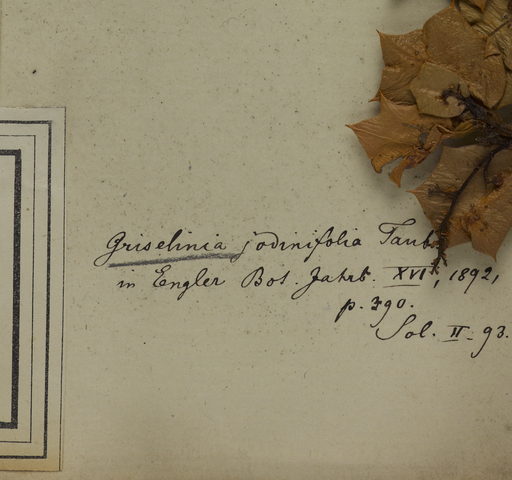 Griselinia jodinifolia Taub.
in Engler Bot. Jahrb. XVI, 1892,
p. 390.
Sol. II. 93.